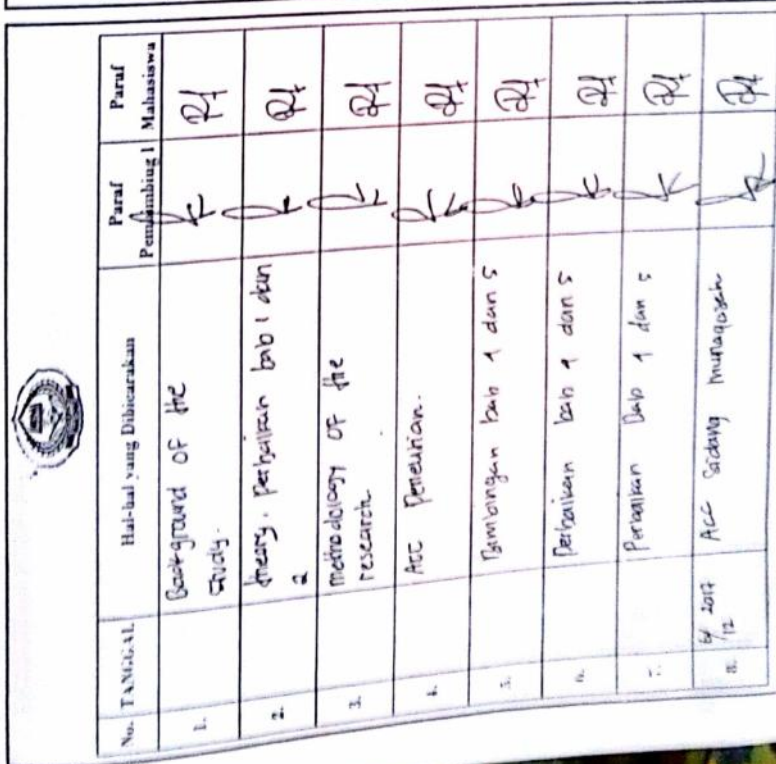 No. TANGGAL Hal-hal yang Dibicarakan Paraf Pembimbing 1 Paraf Mahasiswa
1. Background of the
study.
2. theory. perbaikan bab 1 dan
2
3. methodology of the
research.
4. Acc Penelitian.
5. Bimbingan bab 4 dan 5
6. Perbaikan bab 4 dan 5
7. Perbaikan bab 4 dan 5
8. 6/12 2017 Acc Sidang munaqosah